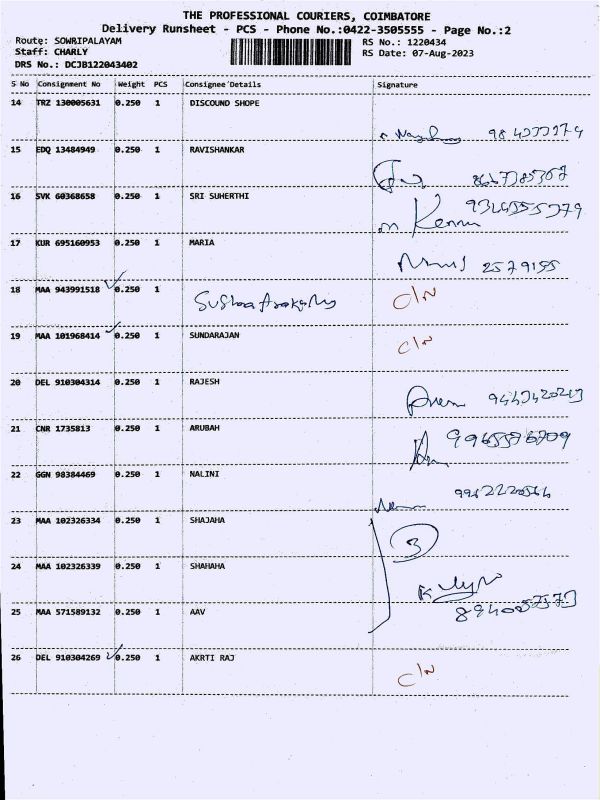 THE PROFESSIONAL COURIERS, COIMBATORE
Delivery Runsheet - PCS - Phone No.:0422-3505555 - Page No.:2
Route: SOWRIPALAYAM RS No.: 1220434
Staff: CHARLY RS Date: 07-Aug-2023
DRS No.: DCJB122043402
S No Consignment No Weight PCS Consignee Details Signature
14 TRZ 130005631 0.250 1 DISCOUND SHOPE
15 EDQ 13484949 0.250 1 RAVISHANKAR
16 SVK 60368658 0.250 1 SRI SUHERTHI
17 KUR 695160953 0.250 1 MARIA
2579155
18 MAA 943991518 0.250 1 C/N
19 MAA 101968414 0.250 1 SUNDARAJAN C/N
20 DEL 910304314 0.250 1 RAJESH
21 CNR 1735813 0.250 1 ARUBAH
22 GGN 98384469 0.250 1 NALINI
23 MAA 102326334 0.250 1 SHAJAHA 3
24 MAA 102326339 0.250 1 SHAHAHA
25 MAA 571589132 0.250 1 AAV
26 DEL 910304269 0.250 1 AKRTI RAJ C/N